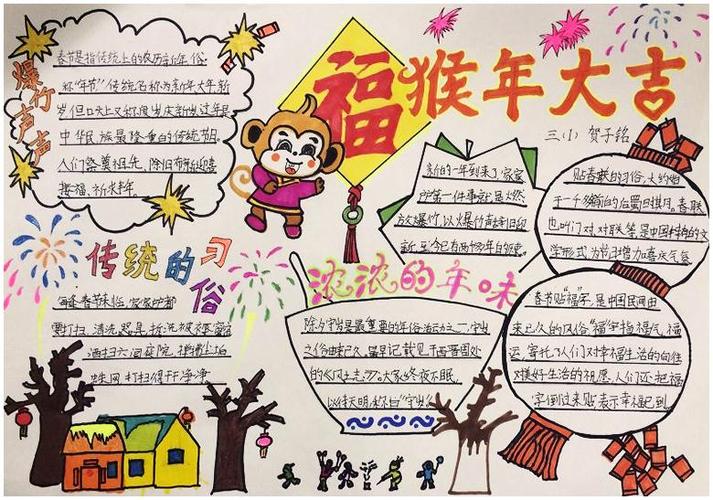 福
猴年大吉
三.(1) 贺子铭
爆竹声声
春节是指传统上的农历新年.俗
称"年节"传统名称为新年大年新
岁.但口头上又称度岁庆新岁过年是
中华民族最隆重的传统节日.
人们祭奠祖先、除旧布新迎禧
接福、祈求丰年.
新的一年到来了,家家
所第一件事就是燃
放爆竹,以爆竹声辞旧迎
新,至今已有两千多年的历史.
贴春联的习俗,大约始
于一千多年前的后蜀.春联
也叫门对、对联等.是中国特有的文
学形式.为节日增加喜庆气氛
传统的习俗
每逢春节来临,家家户户都
要打扫 清洗器具,拆洗被褥窗帘
洒扫六闾庭院,掸拂尘垢
蛛网.打扫得干干净净.
浓浓的年味
除夕守岁是最重要的年俗活动之一,守岁
之俗由来已久.最早记载见于西晋周处
的《风土志》.大家终夜不眠,
以待天明,称曰"守岁".
春节贴"福"字,是中国民间由
来已久的风俗."福"字指福气、福
运,寄托了人们对幸福生活的向往
对美好生活的祝愿.人们还把福
字倒过来贴.表示幸福已到